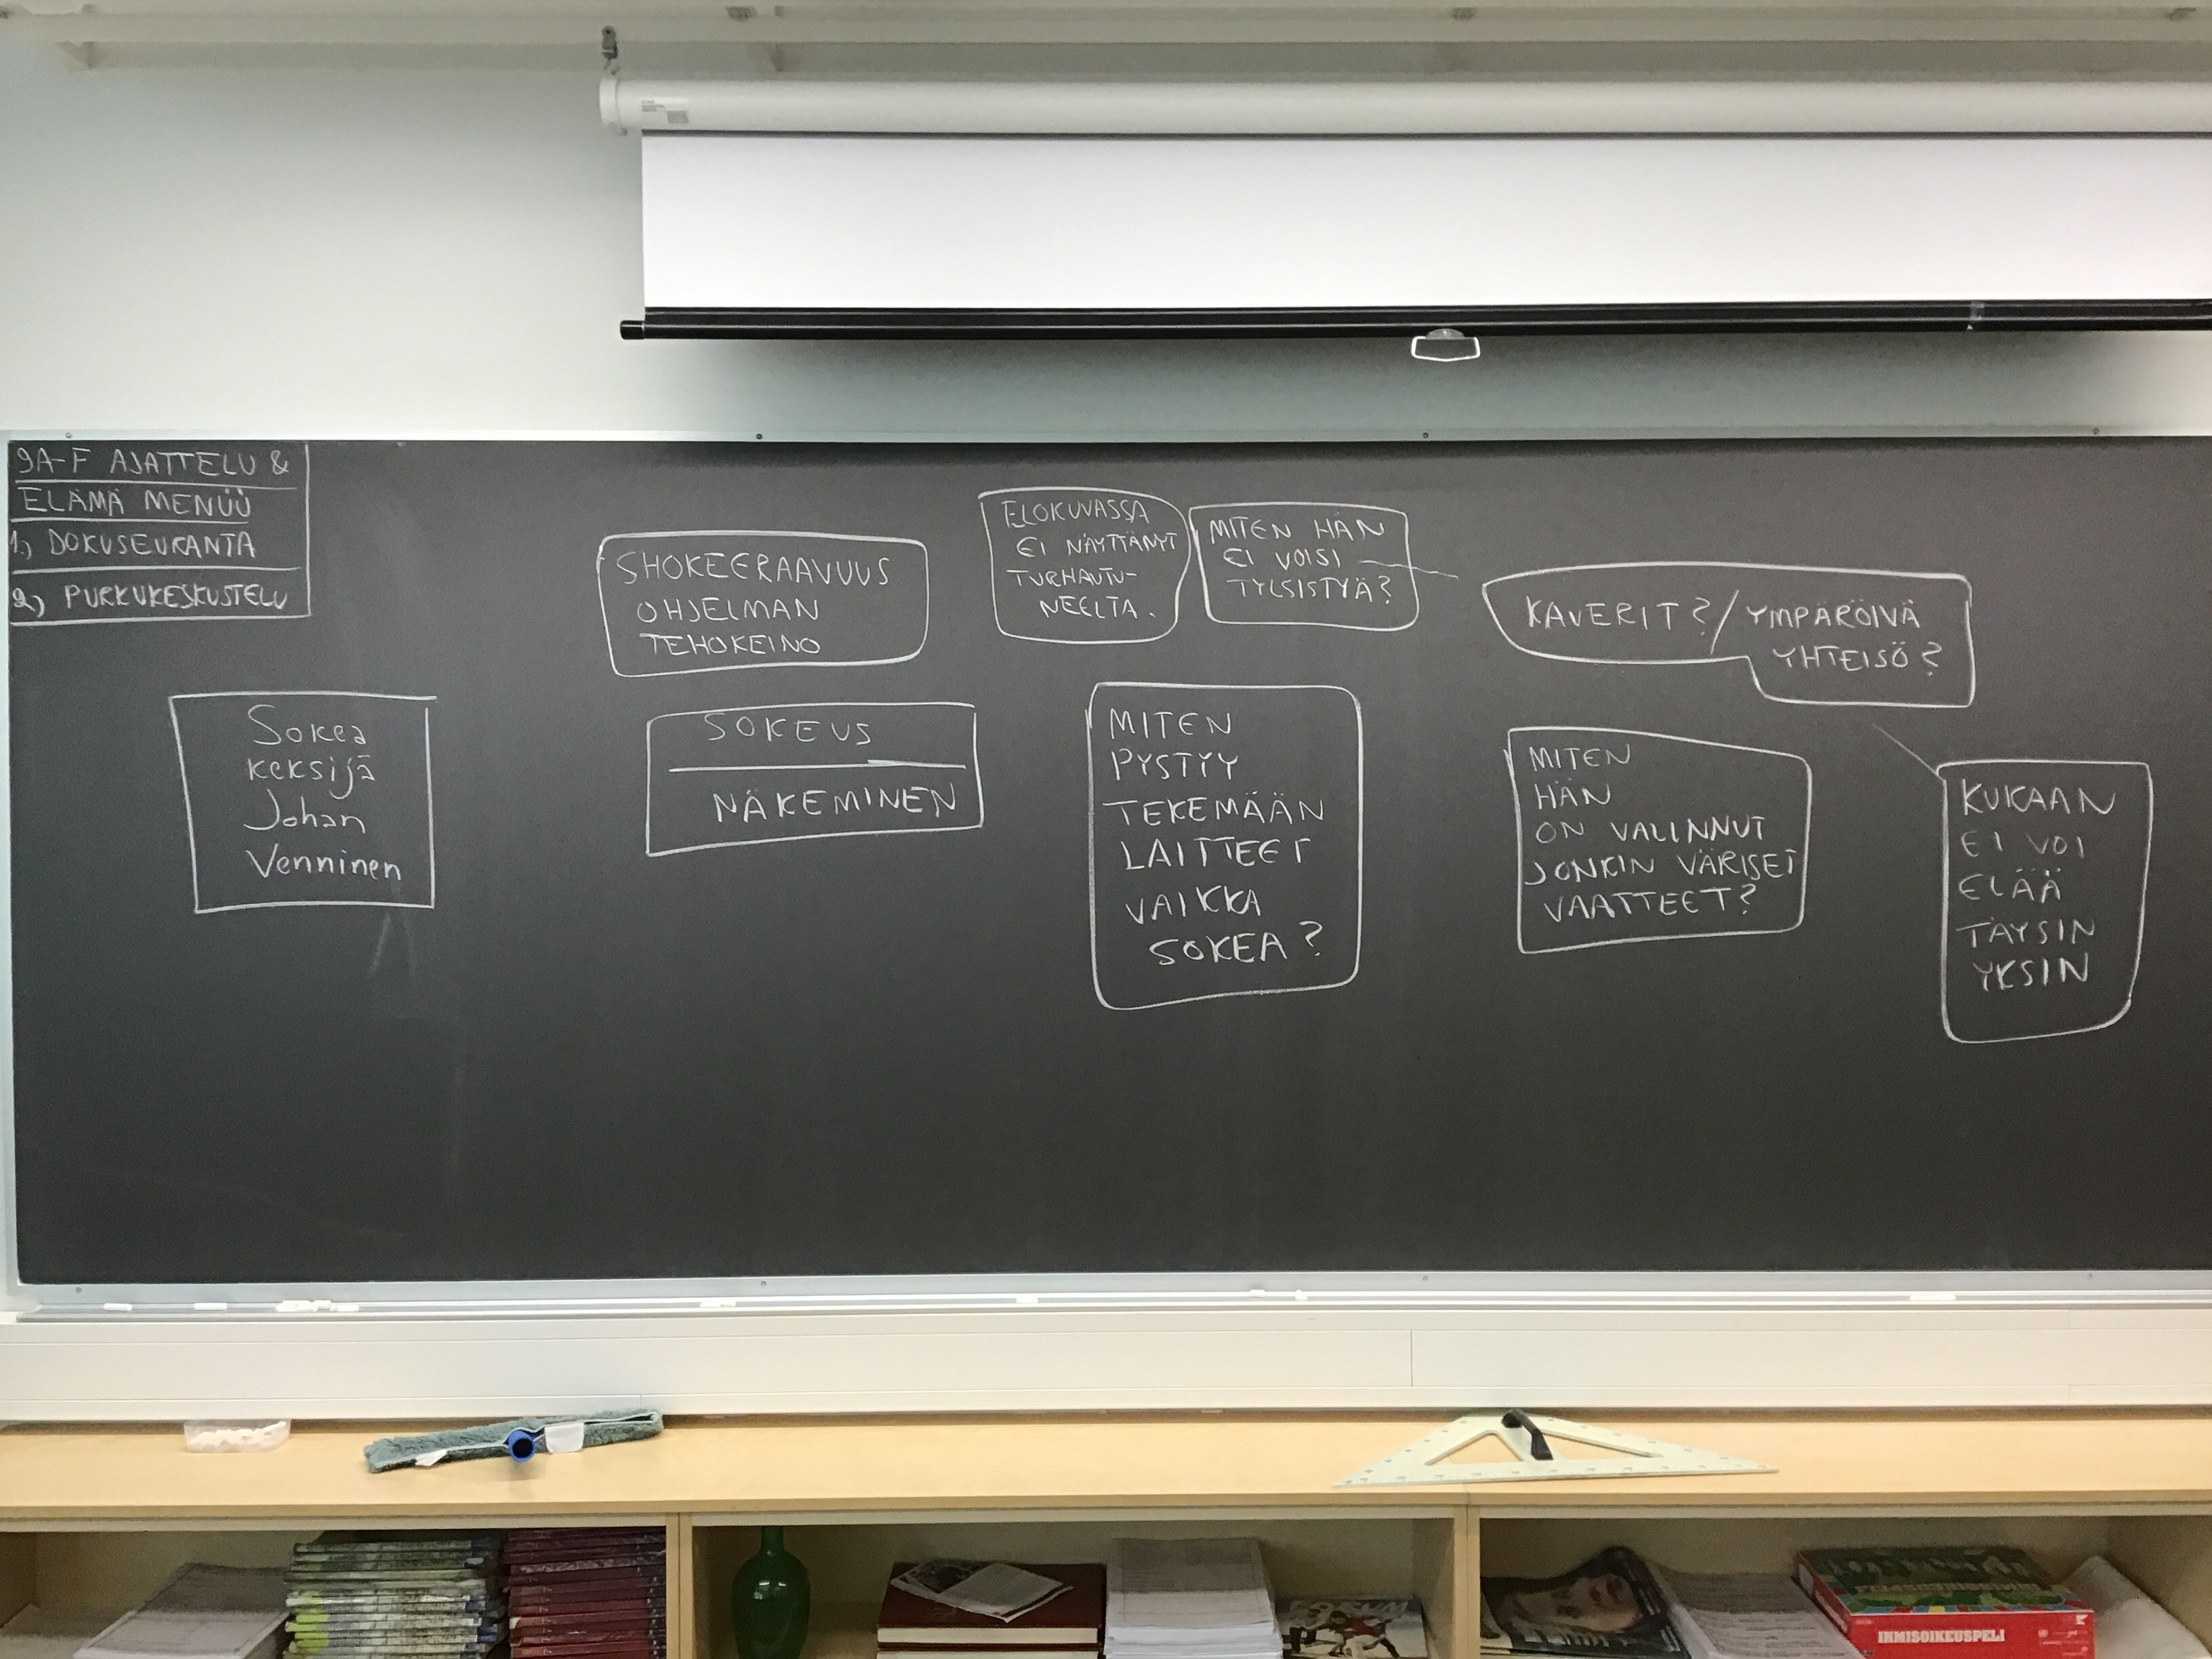 9A-F AJATTELU &
ELÄMÄ MENÜÜ
1.) DOKUSEURANTA
2.) PURKUKESKUSTELU
Sokea
keksijä
Johan
Venninen
SHOKEERAAVUUS
OHJELMAN
TEHOKEINO
SOKEUS
NÄKEMINEN
ELOKUVASSA
EI NÄYTTÄNYT
TURHAUTU-
NEELTA.
MITEN HÄN
EI VOISI
TYLSISTYÄ?
MITEN
PYSTYY
TEKEMÄÄN
LAITTEET
VAIKKA
SOKEA?
KAVERIT? / YMPÄRÖIVÄ
YHTEISÖ?
MITEN
HÄN
ON VALINNUT
JONKIN VÄRISET
VAATTEET?
KUKAAN
EI VOI
ELÄÄ
TÄYSIN
YKSIN
IHMISOIKEUSPELI